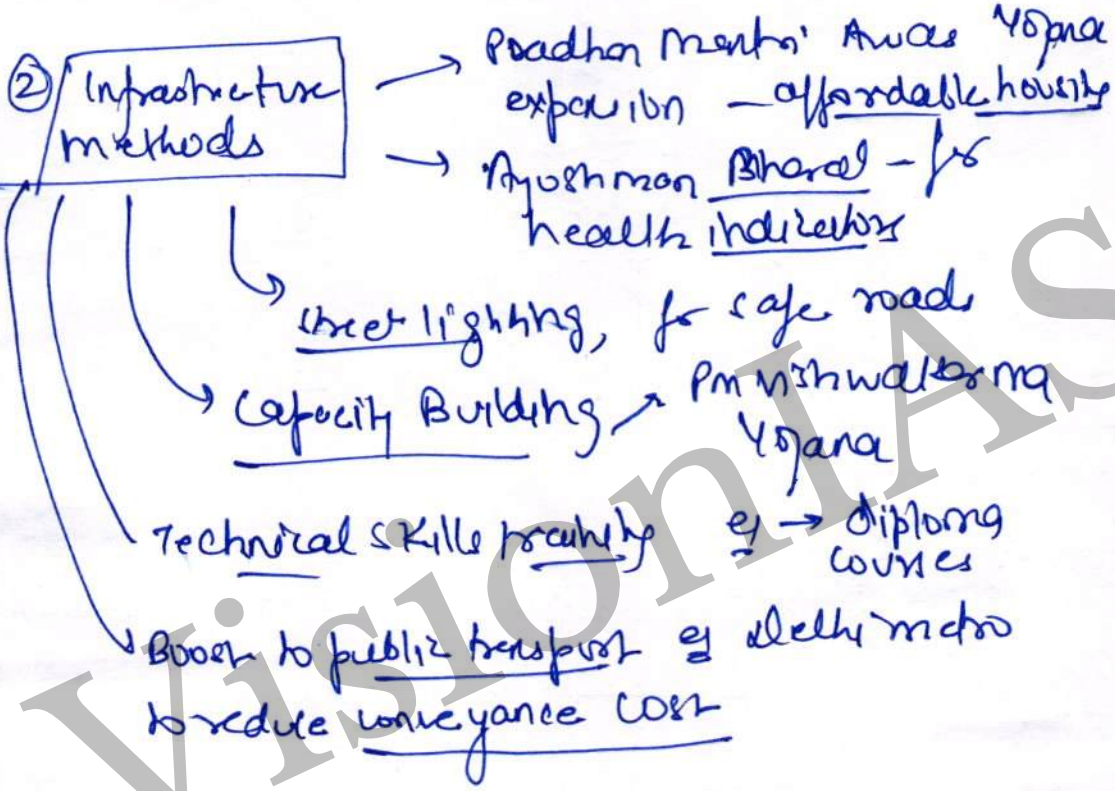 ② Infrastructure → Pradhan Mantri Awas Yojana
methods
expansion – affordable housing
→ Ayushman Bharat – for
health indicators
street lighting, for safe roads
Capacity Building → PM Vishwakarma
Yojana
Technical skills training eg → Diploma
courses
Boost to public transport eg Delhi metro
to reduce conveyance cost
VisionIAS